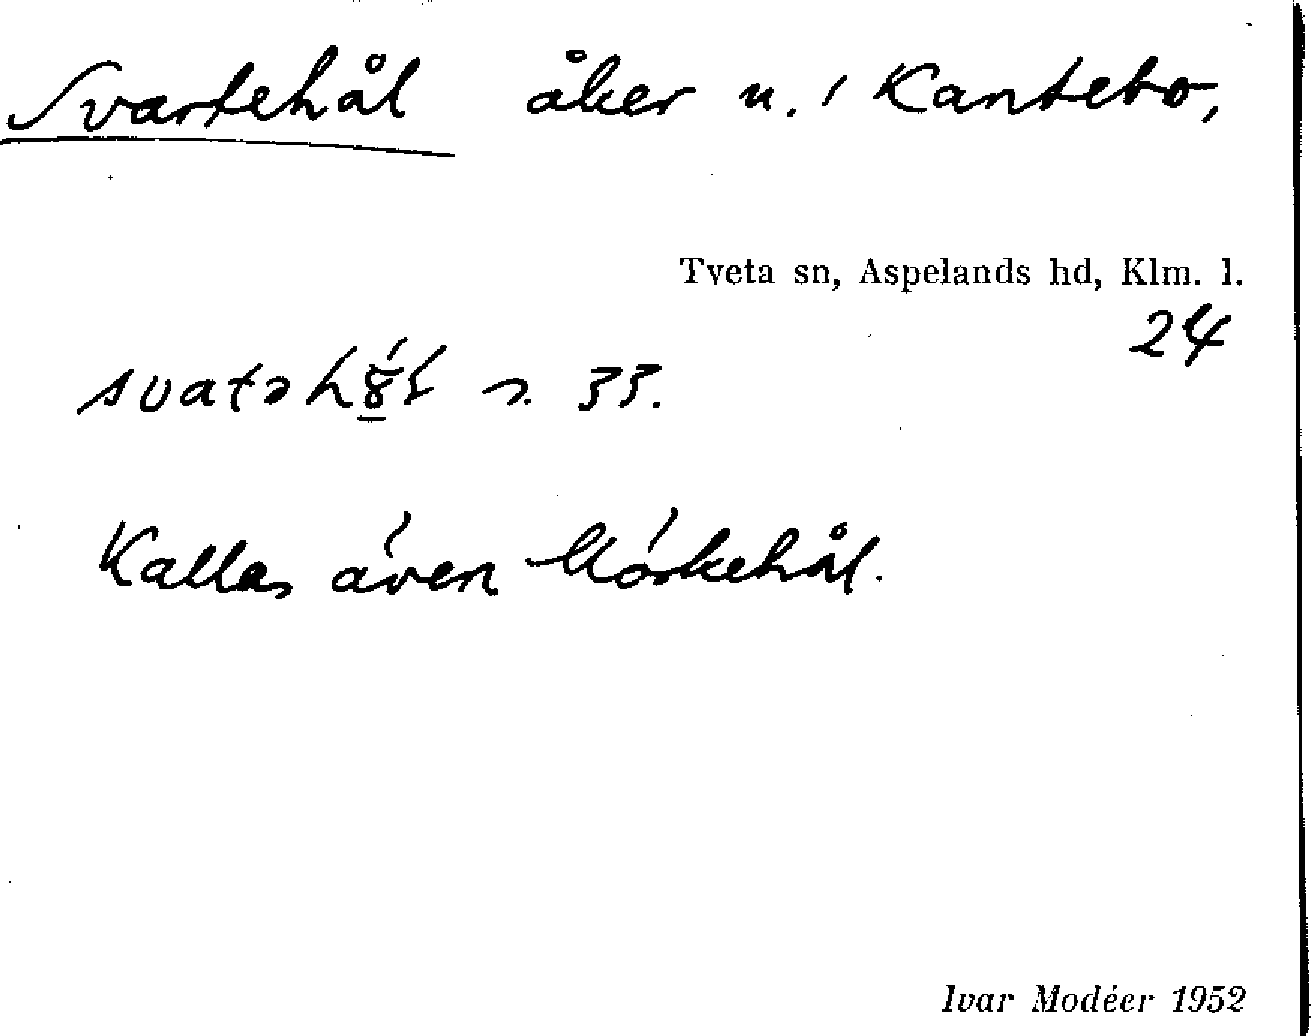 Svartehål åker n. i Kantebo,
Tveta sn, Aspelands hd, Klm. l.
24
33.
Kallas även Mörkehål.
Ivar Modéer 1952